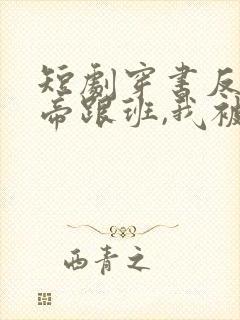 短剧穿书反
帝跟班,我被
西青之